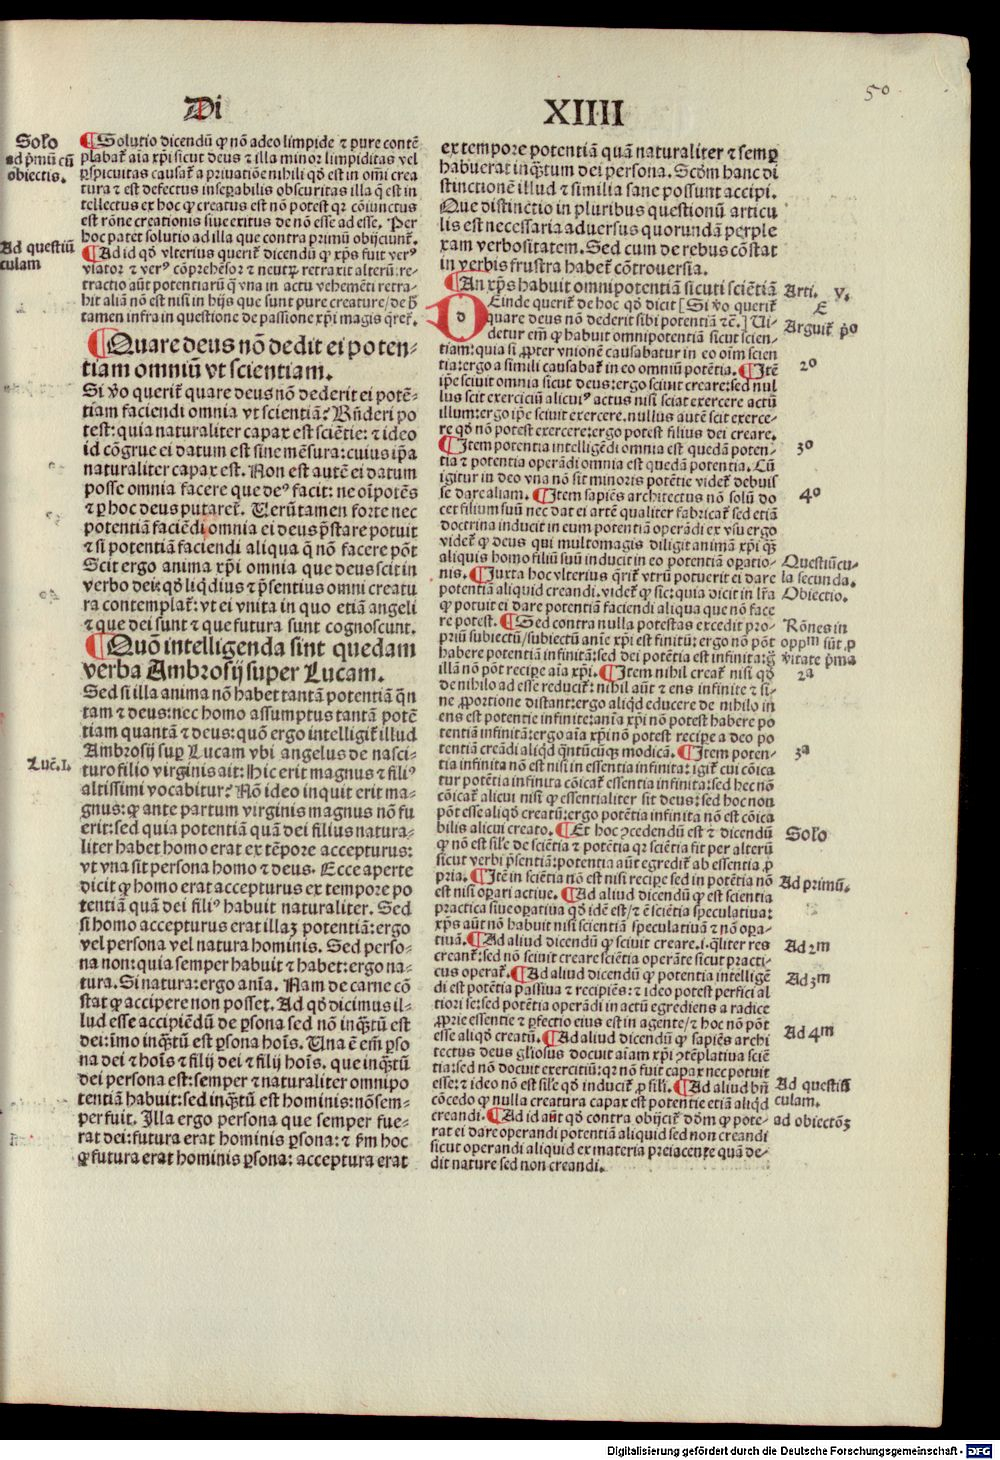 50
Di
XIIII
Solo
ad pͥmū cū
obiectis.
¶ Solutio dicendū ꝙ nō adeo limpide ⁊ pure contē
plabaꝉ aīa xp̄i sicut deus ⁊ illa minor limpiditas vel
ꝑspicuitas causaꝉ a priuatiōe nihili qð est in om̄i crea
tura ⁊ est defectus inseꝑabilis obscuritas illa q̄ est in
tellectus ex hoc ꝙ creatus est nō potest qꝛ cōiunctus
est rōne creationis siue exitus de nō esse ad esse. Per
hoc patet solutio ad illa que contra primū obijciunꝉ.
Ad questiū
culam
¶ Ad id qð vlterius queriꝉ dicendū ꝙ xp̄s fuit verꝰ
viator ⁊ verꝰ cōprehēsor ⁊ neutꝝ retraxit alterū: re-
tractio aūt potentiarū q̄ vna in actu vehemēti retra-
hit aliā non est nisi in hijs que sunt pure creature/ de h̄
tamen infra in questione de passione xp̄i magis q̄reꝉ.
¶ Quare deus nō dedit ei poten-
tiam omniū vt scientiam.
Si v̄o queriꝉ quare deus nō dederit ei potē-
tiam faciendi omnia vt scientiā? Rn̄deri po
test: quia naturaliter capax est sciētie: ⁊ ideo
id cōgrue ei datum est sine mēsura: cuius ip̄a
naturaliter capax est. Non est autē ei datum
posse omnia facere que deꝰ facit: ne oīpotēs
⁊ ꝑ hoc deus putareꝉ. Uerūtamen forte nec
potentiā faciēdi omnia ei deus p̄stare potuit
⁊ si potentiā faciendi aliqua q̄ nō facere pōt
Scit ergo anima xp̄i omnia que deus scit in
verbo dei: qð liqdius ⁊ p̄sentius omni creatu
ra contemplaꝉ: vt ei vnita in quo etiā angeli
⁊ que dei sunt ⁊ que futura sunt cognoscunt.
¶ Quō intelligenda sint quedam
verba Ambrosij super Lucam.
Sed si illa anima nō habet tantā potentiā q̄n
tam ⁊ deus: nec homo assumptus tantā potē
tiam quantā ⁊ deus: quō ergo intelligiꝉ illud
Ambrosij suꝑ Lucam vbi angelus de nasci-
Luc̄. I.
turo filio virginis ait: Hic erit magnus ⁊ filiꝰ
altissimi vocabitur? Nō ideo inquit erit ma-
gnus: ꝙ ante partum virginis magnus nō fu
erit: sed quia potentiā quā dei filius natura-
liter habet homo erat ex tēpore accepturus:
vt vna sit persona homo ⁊ deus. Ecce aperte
dicit ꝙ homo erat accepturus ex tempore po
tentiā quā dei filiꝰ habuit naturaliter. Sed
si homo accepturus erat illaꝫ potentiā: ergo
vel persona vel natura hominis. Sed perso-
na non: quia semper habuit ⁊ habet: ergo na-
tura. Si natura: ergo aīa. Nam de carne cō
stat ꝙ accipere non posset. Ad qð dicimus il-
lud esse accipiēdū de ꝑsona sed nō inqꝫtū est
dei: īmo inqꝫtū est ꝑsona hoīs. Una ē em̄ ꝑso
na dei ⁊ hoīs ⁊ filij dei ⁊ filij hoīs. que inqꝫtū
dei persona est: semper ⁊ naturaliter omnipo
tentiā habuit: sed inqꝫtū est hominis: nō sem-
per fuit. Illa ergo persona que semper fue-
rat dei: futura erat hominis ꝑsona: ⁊ ẜm hoc
ꝙ futura erat hominis ꝑsona: acceptura erat
ex tempore potentiā quā naturaliter ⁊ semꝑ
habuerat inqꝫtum dei persona. Scōm hanc di
stinctionē illud ⁊ similia sane possunt accipi.
Que distinctio in pluribus questionū articu
lis est necessaria aduersus quorundā perple
xam verbositatem. Sed cum de rebus cōstat
in verbis frustra habeꝉ cōtrouersia.
¶ An xp̄s habuit omnipotentiā sicuti sciētiā
Arti. v.
E
DEinde queriꝉ de hoc qð dicit [Si v̄o queriꝉ
quare deus nō dederit sibi potentiā ⁊c̄.] Ui-
Arguiꝉ pͦo
detur em̄ ꝙ habuit omnipotentiā sicut scien-
tiam: quia si ꝓpter vnionē causabatur in eo oīm scien
tia: ergo a simili causabaꝉ in eo omniū potētia. ¶ Itē
2º
ip̄e sciuit omnia sicut deus: ergo sciuit creare: sed nul
lus scit exerciciū alicuiꝰ actus nisi sciat exercere actū
illum: ergo ip̄e sciuit exercere. nullus autē scit exerce-
re qð nō potest exercere: ergo potest filius dei creare.
¶ Item potentia intelligēdi omnia est quedā poten-
3º
tia ⁊ potentia operādi omnia est quedā potentia. Cū
igitur in deo vna nō sit minoris potētie videꝉ debuis
se dare aliam. ¶ Item sapiēs architectus nō solū do
4º
cet filium suū nec dat ei artē qualiter fabricaꝉ sed etiā
doctrina inducit in eum potentiā operādi ex vsu ergo
videꝉ ꝙ deus qui multomagis diligit animā xp̄i qꝫ
aliquis homo filiū suū inducit in eo potentiā oꝑatio-
Questiūcu-
nis. ¶ Juxta hoc vlterius q̄riꝉ vtrū potuerit ei dare
la secunda.
potentiā aliquid creandi. videꝉ ꝙ sic: quia dicit in lr̄a
Obiectio.
ꝙ potuit ei dare potentiā faciendi aliqua que nō face
re potest. ¶ Sed contra nulla potestas excedit pro-
Rōnes in
priū subiectū/ subiectū anīe xp̄i est finitū: ergo nō pōt
oppᵐ sūt ꝓ
habere potentiā infinitā: sed dei potētia est infinita: g̊
v̄itate pͥma
illā nō pōt reciꝑe aīa xp̄i. ¶ Item nihil creaꝉ nisi qð
2ª
de nihilo ad esse reduciꝉ: nihil aūt ⁊ ens infinite ⁊ si-
ne ꝓportione distant: ergo aliqd educere de nihilo in
ens est potentie infinite: anīa xp̄i nō potest habere po
tentiā infinitā: ergo aīa xp̄i nō potest recipe a deo po
tentiā creādi aliqd q̄ntūcūqꝫ modicā. ¶ Item poten-
3ª
tia infinita nō est nisi in essentia infinita: igiꝉ cui cōica
tur potētia infinita cōicaꝉ essentia infinita: sed hec nō
cōicaꝉ alicui nisi ꝙ essentialiter sit deus: sed hoc non
pōt esse aliqð creatū: ergo potētia infinita nō est cōica
bilis alicui creato. ¶ Et hoc ꝯcedendū est ⁊ dicendū
Solo
ꝙ nō est sile de sciētia ⁊ potētia qꝛ sciētia fit per alterū
sicut verbi p̄sentiā: potentia aūt egrediꝉ ab essentia ꝓ
pria. ¶ Itē in sciētia nō est nisi recipe sed in potētia nō
Ad primū.
est nisi oꝑari actiue. ¶ Ad aliud dicendū ꝙ est scientia
practica siue oꝑatiua qð idē est/ ⁊ ē sciētia speculatiua:
xp̄s aūt nō habuit nisi scientiā speculatiuā ⁊ nō oꝑa-
tiuā. ¶ Ad aliud dicendū ꝙ sciuit creare .i. q̄liter res
Ad 2m
creanꝉ: sed nō sciuit creare sciētia operāte sicut practi-
cus operaꝉ. ¶ Ad aliud dicendū ꝙ potentia intelligē
Ad 3m
di est potētia passiua ⁊ recipiēs: ⁊ ideo potest perfici al
tiori se: sed potētia operādi in actū egrediens a radice
ꝓprie essentie ⁊ ꝑfectio eius est in agente/ ⁊ hoc nō pōt
esse aliqð creatū. ¶ Ad aliud dicendū ꝙ sapiēs archi
Ad 4m
tectus deus gl̄iosus docuit aīam xp̄i ꝯtēplatiua sciē
tia: sed nō docuit exercitiū: qꝛ nō fuit capax nec potuit
esse: ⁊ ideo nō est sile qð induciꝉ ꝓ sili. ¶ Ad aliud bn̄
Ad questiū
cōcedo ꝙ nulla creatura capax est potentie etiā aliqd
culam.
creandi. ¶ Ad id aūt qð contra obijciꝉ dōm ꝙ pote-
ad obiectōꝫ
rat ei dare operandi potentiā aliquid sed non creandi
sicut operandi aliquid ex materia preiacente quā de-
dit nature sed non creandi.
Digitalisierung gefördert durch die Deutsche Forschungsgemeinschaft - DFG